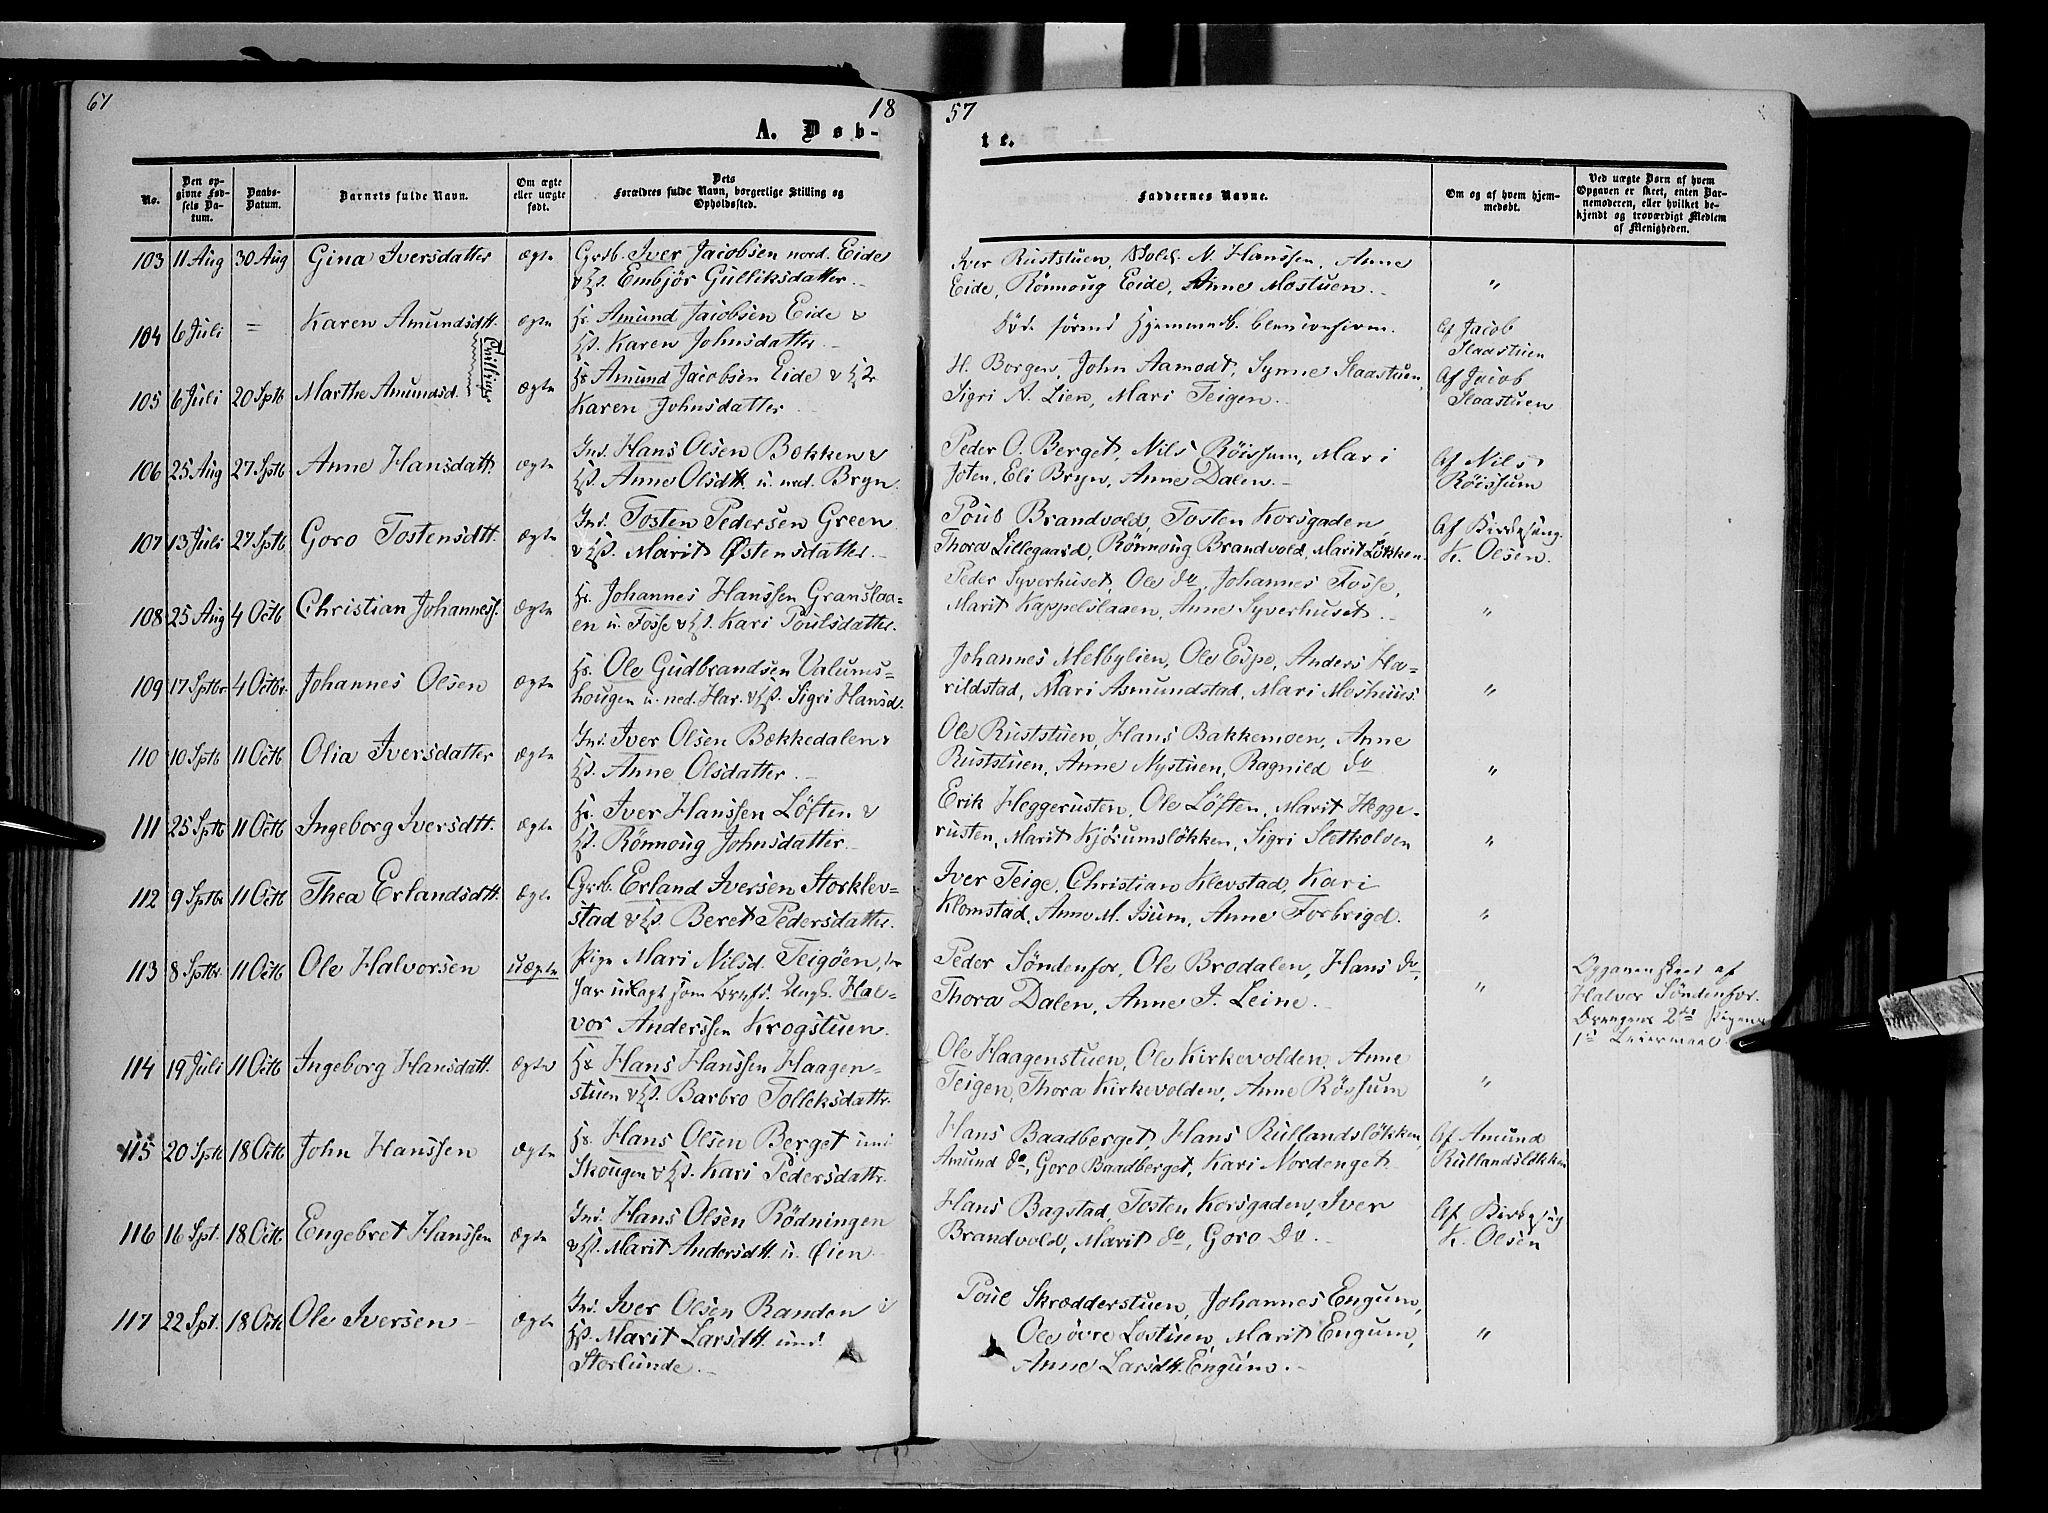 67
18
57
A. Døb-
te.
No.
Den op-
givne Fød-
sels Da-
tum.
Daabs-
Datum.
Barnets fulde Navn.
Om ægte
eller uægte
født.
Dets
Forældres fulde Navn, borgerlige Stilling og
Opholdssted.
Faddernes Navne.
Om og af hvem hjem-
medøbt.
Ved uægte Børn af hvem
Opgaven er skeet, enten Bar-
nemoderen, eller hvilket be-
kjendt og troværdigt Medlem
af Menigheden.
103 11 Aug 30 Aug Gina Iversdatter ægte Grdb. Iver Jacobsen nord. Eide
& Hst. Embjör Gulliksdatter.
Iver Ruststuen, Sold. N. Hanssen, Anne
Eide, Rönnoug Eide, Anne Mostuen. "
104 6 Juli = Karen Amundsdtt. ægte Hs. Amund Jacobsen Eide &
Hst. Karen Johnsdatter
Död förend Hjemmedb.
Af Jacob
Slaastuen
Tvillinger
105 6 Juli 20 Sptb Marthe Amundsd. ægte Hs Amund Jacobsen Eide &
Karen Johnsdatter
H. Borgen, John Aamodt, Synne Slaastuen,
Sigri A. Lien, Mari Teigen.
Af Jacob
Slaastuen
106 25 Aug 27 Sptb Anne Hansdatt. ægte Ind. Hans Olsen Bækken &
Hst. Anne Olsdtt. u. ned. Bryn.
Peder O. Berget, Nils Röissum, Mari
Joten, Eli Bryn, Anne Dalen.
Af Nils
Röissum
107 13 Juli 27 Sptb Goro Tostensdtt. ægte Ind. Tosten Pedersen Green
& Hst. Marit Østensdatter.
Poul Brandvold, Tosten Korsgaden,
Thora Lillegaard, Rönnoug Brandvold, Marit Løkken.
Af Kirkesang.
K. Olsen.
108 25 Aug 4 Octb Christian Johanness. ægte Hs. Johannes Hanssen Granslaa-
en u. Fosse & Hst. Kari Poulsdatter.
Peder Syverhuset, Ole do, Johannes Fosse,
Marit Kappelslaaen, Anne Syverhuset. "
109 17 Sptbr 4 Octbr. Johannes Olsen ægte Hs. Ole Gudbrandsen Valums-
hougen u. ned. Har. & Hst. Sigri Hansd.
Johannes Melbylien, Ole Espe, Anders Ha-
rildstad, Mari Asmundstad, Mari Moshuus. "
110 10 Sptb 11 Octb Olia Iversdatter ægte Ind. Iver Olsen Bækkedalen &
Hst. Anne Olsdatter.
Ole Ruststuen, Hans Bakkemoen, Anne
Ruststuen, Anne Nystuen, Ragnild do "
111 25 Sptb 11 Octb Ingeborg Iversdtt. ægte Hs. Iver Hanssen Löften &
Hst. Rönnoug Johnsdatter.
Erik Heggerusten, Ole Löften, Marit Hegge-
rusten, Marit Kjörumslökken, Sigri Sletholden "
112 9 Sptbr 11 Octb Thea Erlandsdtt. ægte Grdb. Erland Iversen Storklev-
stad & Hst. Beret Pedersdatter.
Iver Teige, Christian Klevstad, Kari
Klomstad, Anne M. Isum, Anne Forbrigd. "
113 8 Sptbr. 11 Octb Ole Halvorsen uægte Pige Mari Nilsd. Teigöen,
har udlagt som Brnfd. Ungk. Hal-
vor Anderssen Krogstuen.
Peder Söndenfor, Ole Brodalen, Hans do,
Thora Dalen, Anne J. Leine. "
Opgaven skeet af
Halvor Söndenfor.
Drengens 2det Pigens
1ste Leiermaal.
114 19 Juli 11 Octb Ingeborg Hansdatt. ægte Hs Hans Hanssen Haagen-
stuen & Hst. Barbro Tolleksdattr.
Ole Haagenstuen, Ole Kirkevolden, Anne
Teigen, Thora Kirkevolden, Anne Rössum "
115 20 Sptb 18 Octb John Hanssen ægte Hs. Hans Olsen Berget
Skougen & Hst. Kari Pedersdattr.
Hans Baadberget, Hans Rullandslökken,
Amund do, Goro Baadberget, Kari Nordenget
Af Amund
Rullandslökken
116 16 Spt. 18 Octb Engebret Hanssen ægte Ind. Hans Olsen Rödningen
& Hst. Marit Andersdtt. u. Øien
Hans Bagstad, Tosten Korsgaden, Iver
Brandvold, Marit do, Goro do.
Af Kirkesang.
K. Olsen
117 22 Spt. 18 Octb Ole Iversen ægte Ind. Iver Olsen Randen &
Hst. Marit Larsdtt. und.
Storlunde.
Poul Skrædderstuen, Johannes Engum,
Ole övre Lostuen, Marit Engum,
Anne Larsdtt. Engum. "